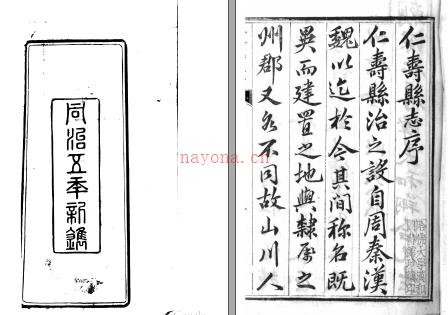 仁壽縣志序
仁壽縣治之設自周秦漢
魏以迄於今其間稱名既
異而建置之地與隸屬之
州郡又各不同故山川人
同治五年新鐫
nayona.cn